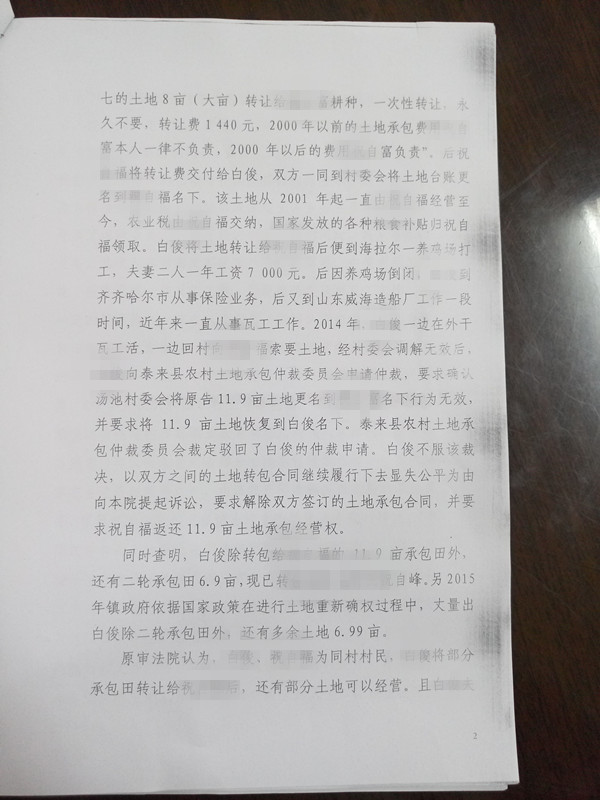 七的土地8亩（大亩）转让给 耕种，一次性转让，永
久不要，转让费1440元，2000年以前的土地承包费
富本人一律不负责，2000年以后的费用 自富负责”。后祝
福将转让费交付给白俊，双方一同到村委会将土地台账更
名到 自福名下。该土地从2001年起一直由 自福经营至
今，农业税由 自福交纳，国家发放的各种粮食补贴归祝自
福领取。白俊将土地转让给 福后便到海拉尔一养鸡场打
工，夫妻二人一年工资7000元。后因养鸡场倒闭， 到
齐齐哈尔市从事保险业务，后又到山东威海造船厂工作一段
时间，近年来一直从事瓦工工作。2014年， 俊一边在外干
瓦工活，一边回村向 福索要土地，经村委会调解无效后，
向泰来县农村土地承包仲裁委员会申请仲裁，要求确认
汤池村委会将原告11.9亩土地更名到 名下行为无效，
并要求将11.9亩土地恢复到白俊名下。泰来县农村土地承
包仲裁委员会裁定驳回了白俊的仲裁申请。白俊不服该裁
决，以双方之间的土地转包合同继续履行下去显失公平为由
向本院提起诉讼，要求解除双方签订的土地承包合同，并要
求祝自福返还11.9亩土地承包经营权。
同时查明，白俊除转包给 福的11.9亩承包田外，
还有二轮承包田6.9亩，现已转 自峰。另2015
年镇政府依据国家政策在进行土地重新确权过程中，丈量出
白俊除二轮承包田外，还有多余土地6.99亩。
原审法院认为， 俊、祝 福为同村村民， 俊将部分
承包田转让给祝 后，还有部分土地可以经营。且白
2